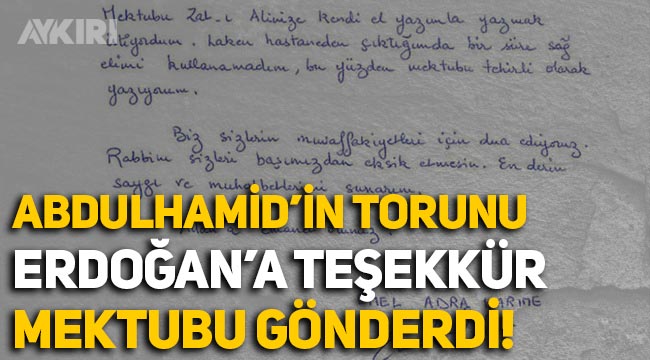 AYKIRI
Mektubu Zat-ı Alinize kendi el yazımla yazmak
istiyordum. Laken hastaneden çıktığımda bir süre sağ
elimi kullanamadım, bu yüzden mektubu tehirli olarak
yazıyorum.
Biz sizlerin muvaffakiyetleri için dua ediyoruz.
Rabbim sizleri başımızdan eksik etmesin. En derin
saygı ve muhabbetlerimi sunarım.
ABDULHAMİD’İN TORUNU
ERDOĞAN’A TEŞEKKÜR
ADRA
MEKTUBU GÖNDERDİ!